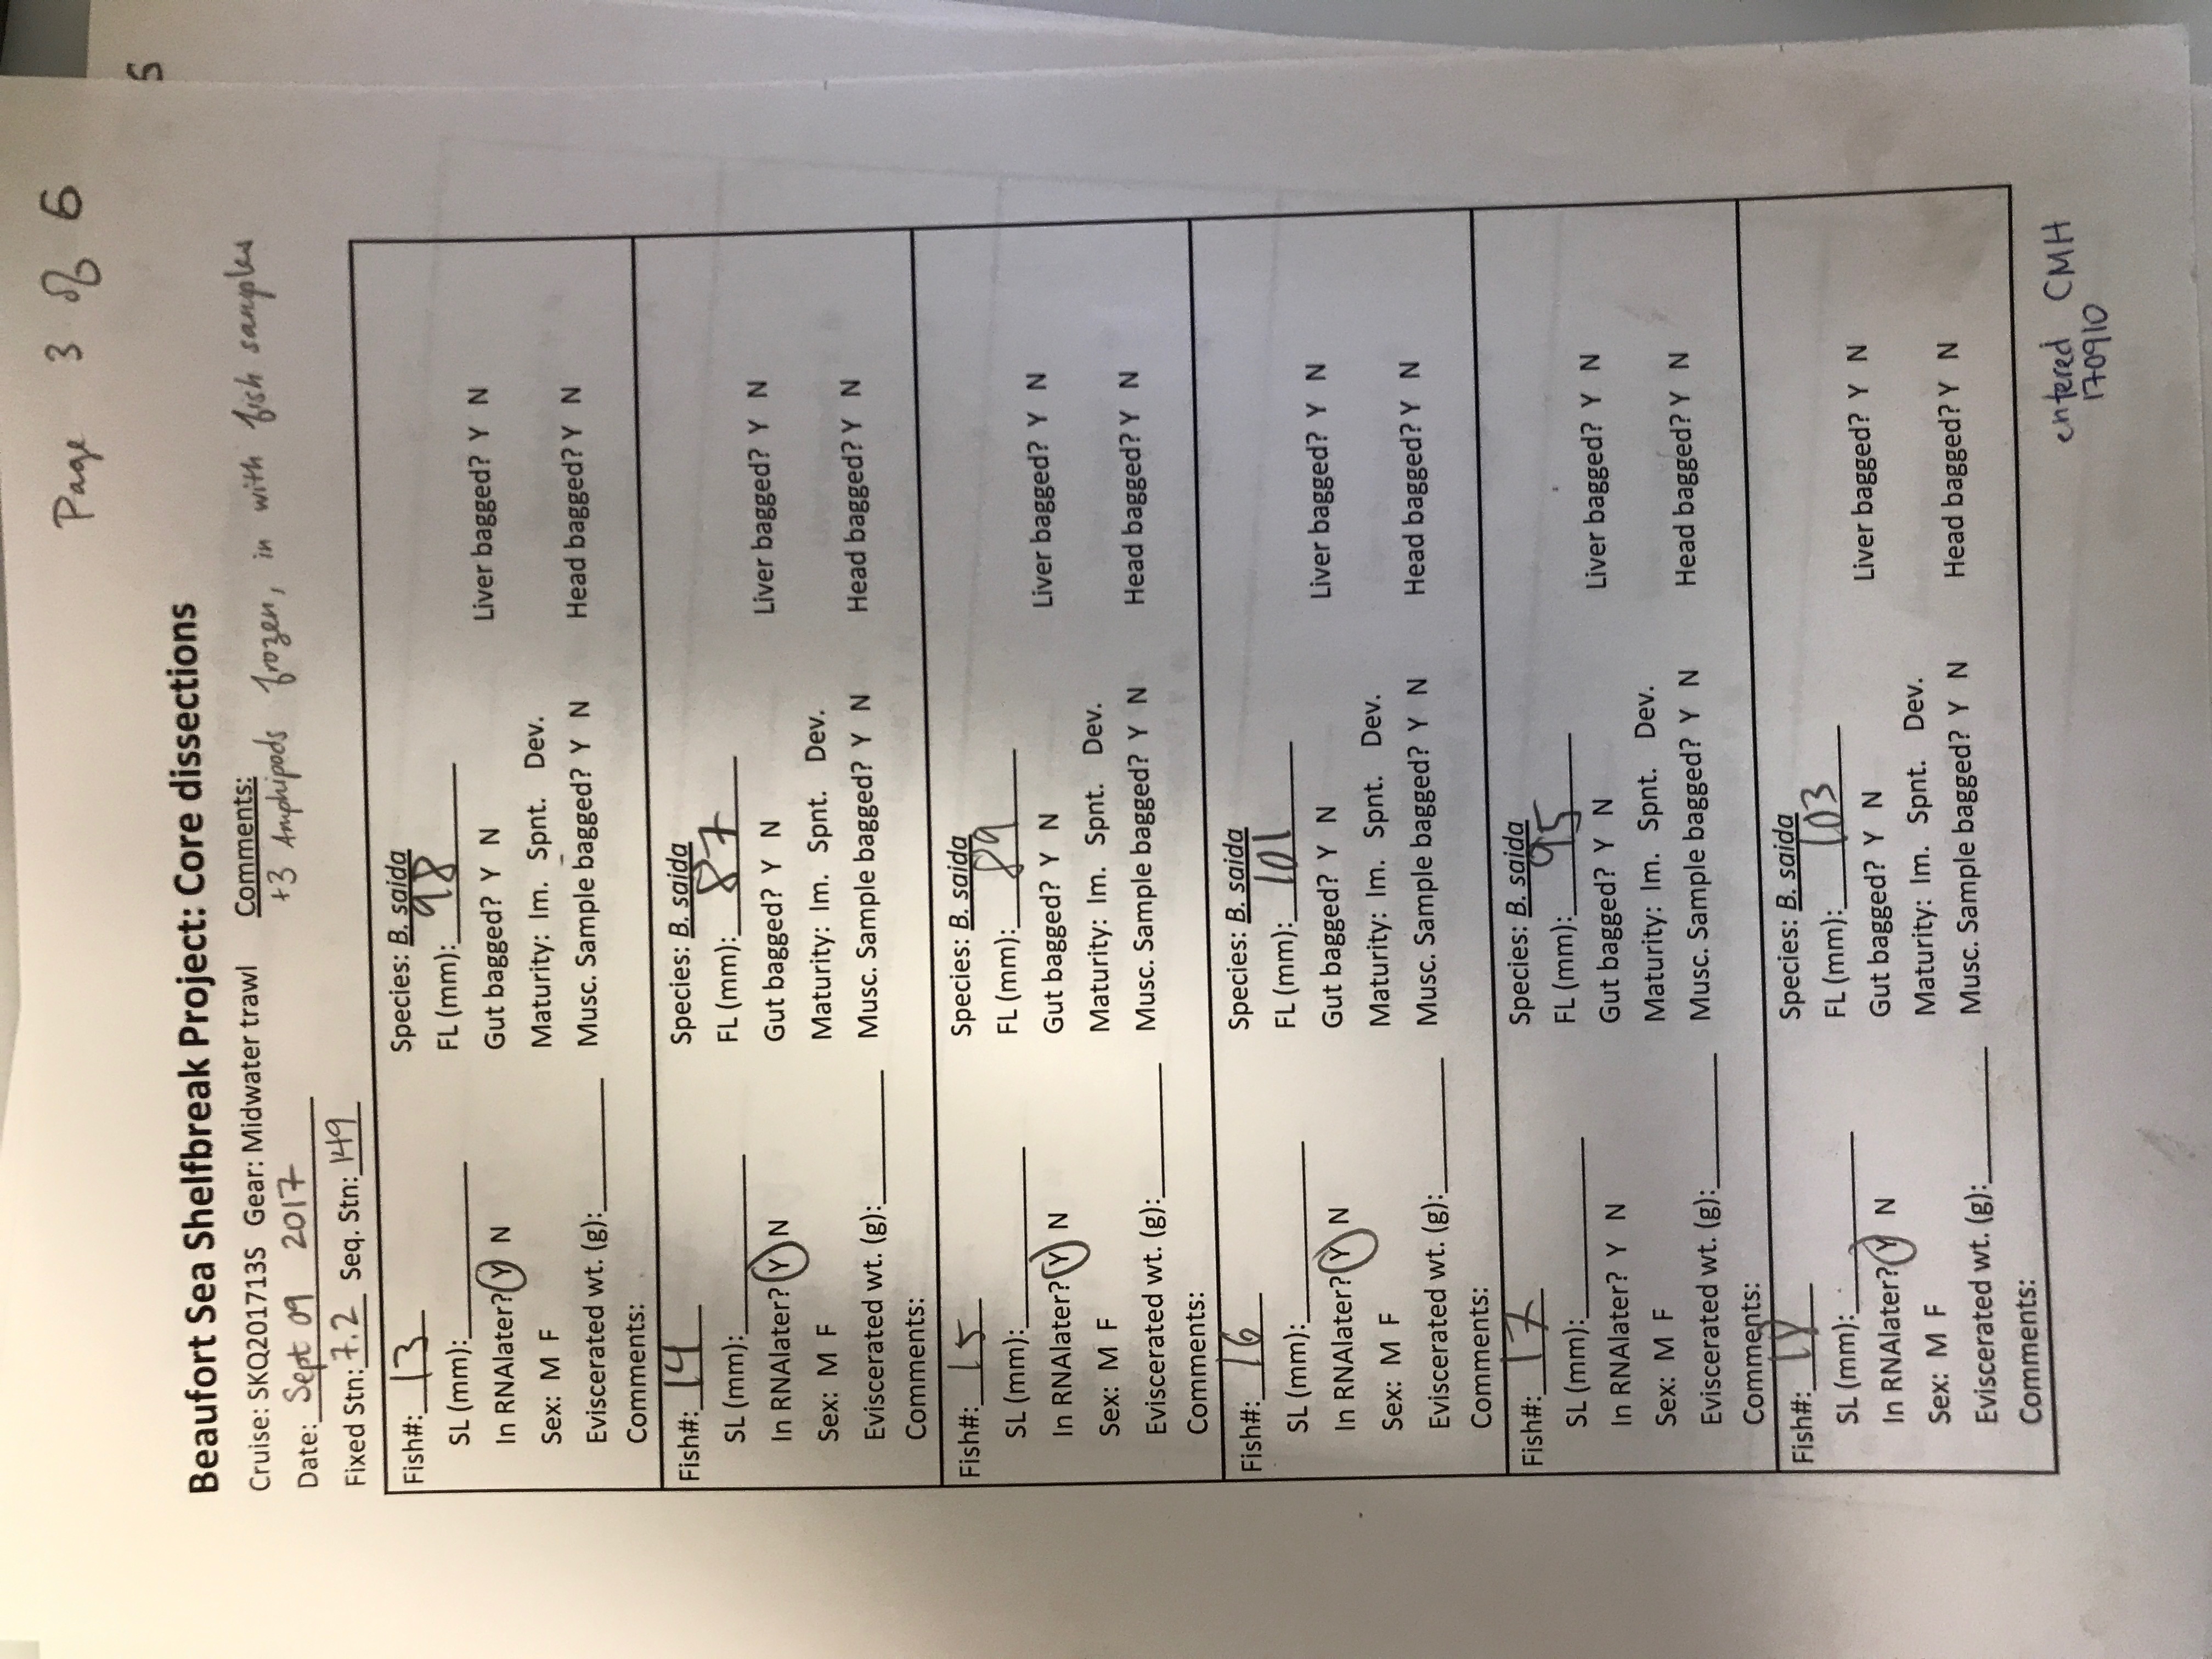 Page 3 of 6
5
Beaufort Sea Shelfbreak Project: Core dissections
Cruise: SKQ201713S Gear: Midwater trawl Comments:
Date: Sept 09 2017 +3 Amphipods frozen, in with fish samples
Fixed Stn: 7.2 Seq. Stn: 149
Fish#: 13 Species: B. saida
SL (mm): FL (mm): 98
In RNAlater? Y N Gut bagged? Y N Liver bagged? Y N
Sex: M F Maturity: Im. Spnt. Dev.
Eviscerated wt. (g): Musc. Sample bagged? Y N Head bagged? Y N
Comments:
Fish#: 14 Species: B. saida
SL (mm): FL (mm): 87
In RNAlater? Y N Gut bagged? Y N Liver bagged? Y N
Sex: M F Maturity: Im. Spnt. Dev.
Eviscerated wt. (g): Musc. Sample bagged? Y N Head bagged? Y N
Comments:
Fish#: 15 Species: B. saida
SL (mm): FL (mm): 89
In RNAlater? Y N Gut bagged? Y N Liver bagged? Y N
Sex: M F Maturity: Im. Spnt. Dev.
Eviscerated wt. (g): Musc. Sample bagged? Y N Head bagged? Y N
Comments:
Fish#: 16 Species: B. saida
SL (mm): FL (mm): 101
In RNAlater? Y N Gut bagged? Y N Liver bagged? Y N
Sex: M F Maturity: Im. Spnt. Dev.
Eviscerated wt. (g): Musc. Sample bagged? Y N Head bagged? Y N
Comments:
Fish#: 17 Species: B. saida
SL (mm): FL (mm): 95
In RNAlater? Y N Gut bagged? Y N Liver bagged? Y N
Sex: M F Maturity: Im. Spnt. Dev.
Eviscerated wt. (g): Musc. Sample bagged? Y N Head bagged? Y N
Comments:
Fish#: 18 Species: B. saida
SL (mm): FL (mm): 103
In RNAlater? Y N Gut bagged? Y N Liver bagged? Y N
Sex: M F Maturity: Im. Spnt. Dev.
Eviscerated wt. (g): Musc. Sample bagged? Y N Head bagged? Y N
Comments:
entered CMH
170910